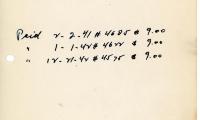 Paid 2-2-41 # 4685 $ 9.00
" 1-1-42 # 4622 $ 9.00
" 12-21-42 # 4575 $ 9.00